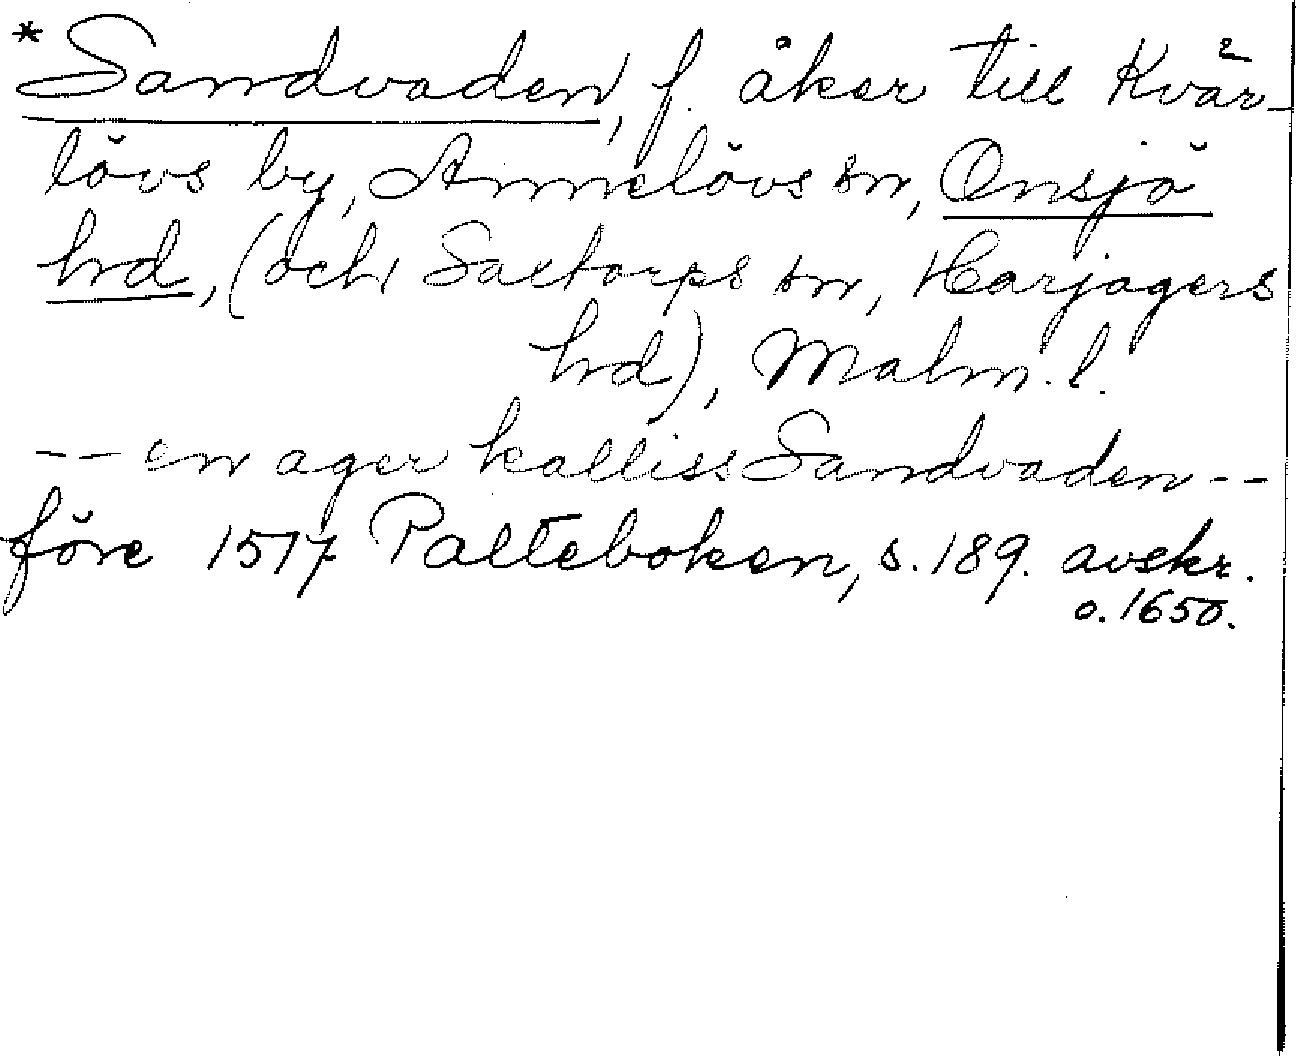 *Sandvaden, f. åker till Kvär-
lövs by, Annelövs sn, Onsjö
hrd, (och Saxtorps sn, Harjagers
hrd), Malm. l.
-- en ager kalliss Sandvaden --
före 1517 Palteboken, s. 189. avskr.
o. 1650.